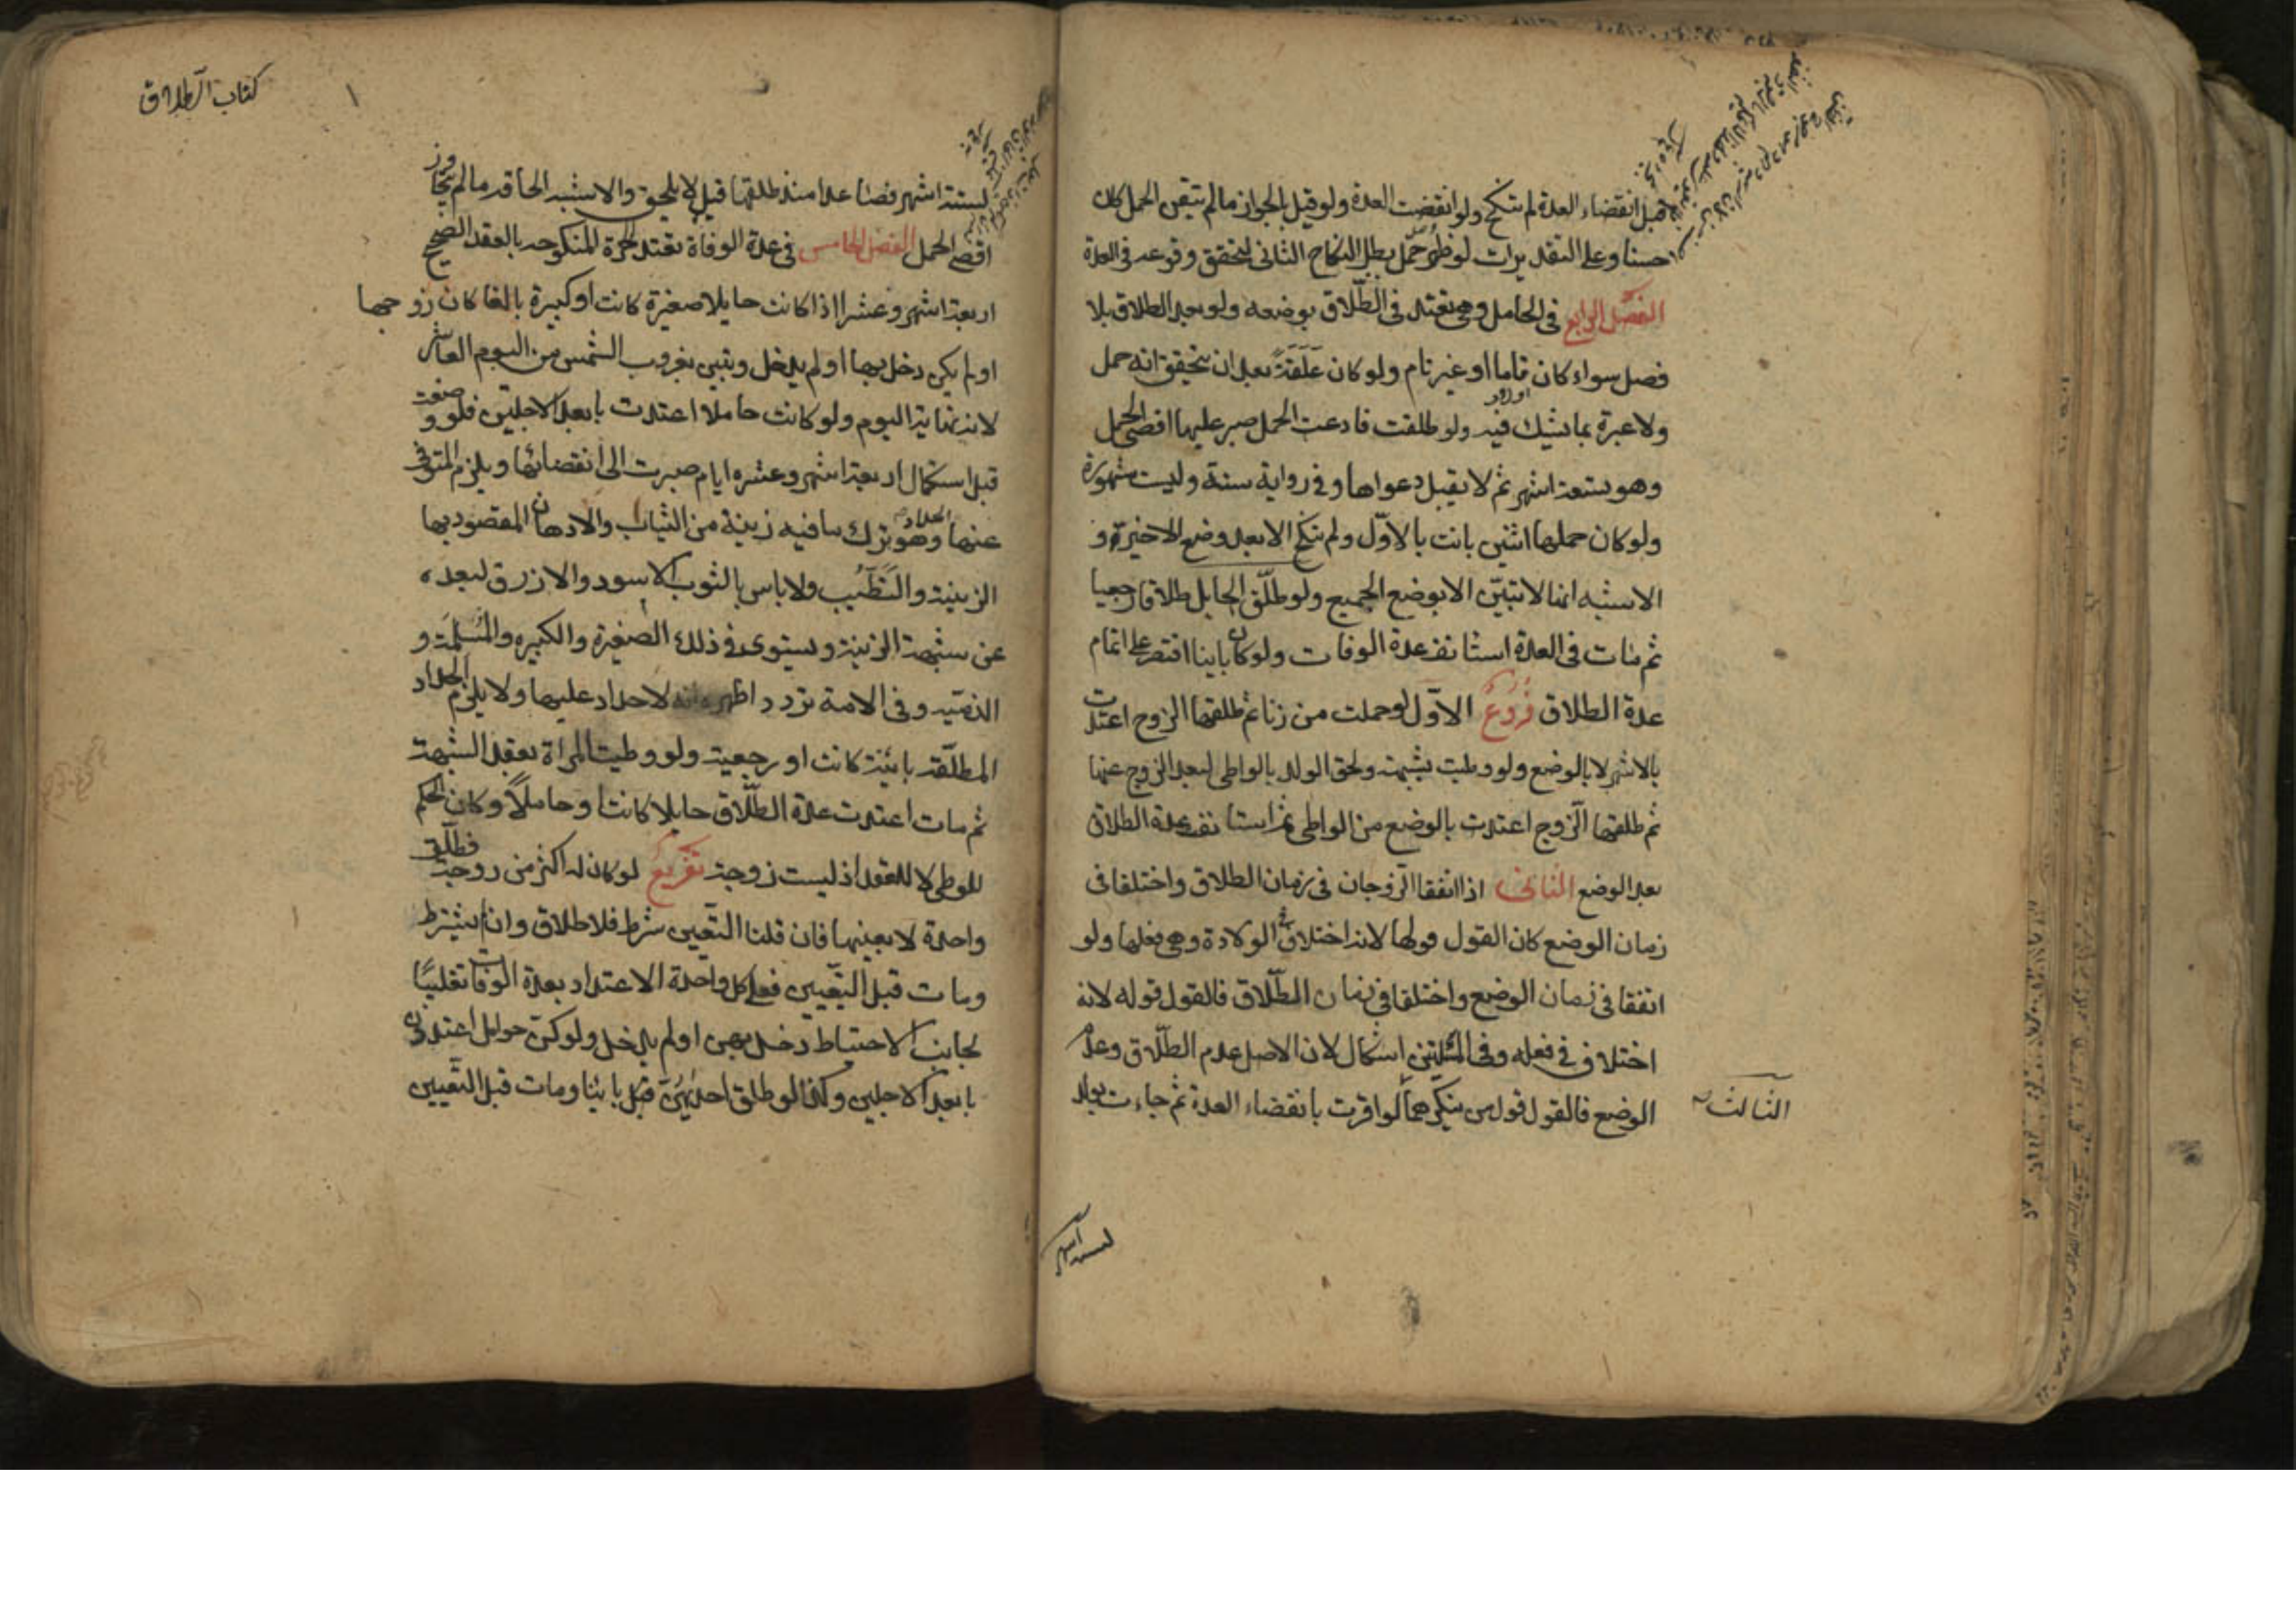 قبل انقضاء العدة لم تنكح ولو انقضت العدة ولو قيل الجواز ما لم تتيقن الحمل كان
حسنا وعلى التقديرات لو ظهر حمل بطل النكاح الثاني لتحقق وقوعه في العدة
الفصل الرابع في الحامل وهي تعتد في الطلاق بوضعه ولو بعد الطلاق بلا
فصل سواء كان تاما او غير تام ولو كان علقة بعد ان يتحقق انه حمل
ولا عبرة بما يشك فيه ولو طلقت فادعت الحمل صبر عليها اقصى الحمل
وهو تسعة اشهر ثم لا يقبل دعواها وفي رواية سنة وليست مشهورة
ولو كان حملها اثنين بانت بالاول ولم تنكح الا بعد وضع الاخير و
الاشبه انها لا تبين الا بوضع الجميع ولو طلق الحايل طلاقا رجعيا
ثم مات في العدة استانفت عدة الوفات ولو كان باينا اقتصر على اتمام
عدة الطلاق فروع الاول لو حملت من زنا ثم طلقها الزوج اعتدت
بالاشهر لا بالوضع ولو وطيت بشبهة ولحق الولد بالواطي لبعد الزوج عنها
ثم طلقها الزوج اعتدت بالوضع من الواطي ثم استانفت عدة الطلاق
بعد الوضع الثاني اذا اتفقا الزوجان في زمان الطلاق واختلفا في
زمان الوضع كان القول قولها لانه اختلاف في الولادة وهي فعلها ولو
اتفقا في زمان الوضع واختلفا في زمان الطلاق فالقول قوله لانه
اختلاف في فعله وفي المسئلتين اشكال لان الاصل عدم الطلاق وعدم
الوضع فالقول قول من ينكرهما لو اقرت بانقضاء العدة ثم جاءت بولد
الثالث
لستة اشهر
كتاب الطلاق
لستة اشهر فصاعدا منذ طلقها قيل لا يلحق والاشبه الحاقه ما لم يتجاوز
اقصى الحمل الفصل الخامس في عدة الوفاة تعتد الحرة المنكوحه بالعقد الصحيح
اربعة اشهر وعشرا اذا كانت حايلا صغيرة كانت او كبيرة بالغا كان زوجها
او لم يكن دخل بها او لم يدخل وتبين بغروب الشمس من اليوم العاشر
لانه نهاية اليوم ولو كانت حاملا اعتدت بابعد الاجلين فلو وضعت
قبل استكمال اربعة اشهر وعشره ايام صبرت الى انقضائها ويلزم المتوفى
عنها الحداد وهو ترك ما فيه زينة من الثياب والادهان المقصود بها
الزينة والتطيب ولا باس بالثوب الاسود والازرق لبعده
عن شبهة الزينة ويستوي في ذلك الصغيرة والكبيره والمسلمة و
الذميه وفي الامة تردد اظهره انه لا حداد عليها ولا يلزم الحداد
المطلقة بائنة كانت او رجعية ولو وطيت المراة بعقد الشبهة
ثم مات اعتدت عدة الطلاق حايلا كانت او حاملا وكان الحكم
للوطي لا للعقد اذ ليست زوجة تفريع لو كان له اكثر من زوجة فطلق
واحدة لا بعينها فان قلنا التعيين شرط فلا طلاق وان لم يشترط
ومات قبل التعيين فعلى كل واحدة الاعتداد بعدة الوفات تغليبا
لجانب الاحتياط دخل بهن او لم يدخل ولو كن حوامل اعتددن
بابعد الاجلين وكذا لو طلق احديهن قبل باينا ومات قبل التعيين